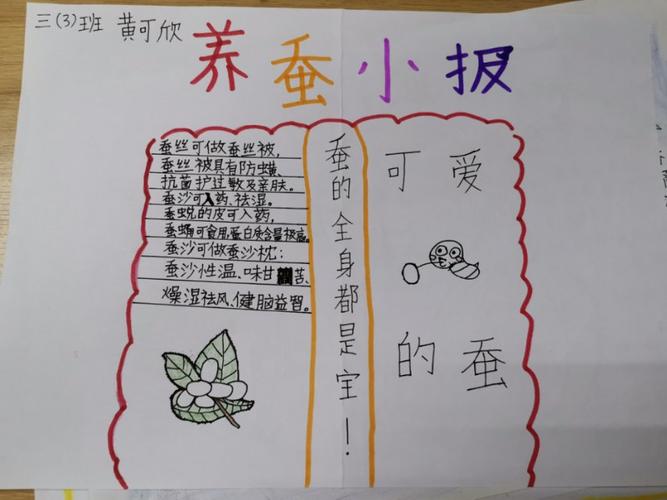 三(3)班 黄可欣
养蚕小报
蚕丝可做蚕丝被,
蚕丝被具有防螨、
抗菌护过敏及亲肤。
蚕沙可入药、祛湿。
蚕蜕的皮可入药,
蚕蛹可食用,蛋白质含量极高。
蚕沙可做蚕沙枕;
蚕沙性温、味甘苦、
燥湿祛风、健脑益智。
蚕的全身都是宝!
可爱
的蚕